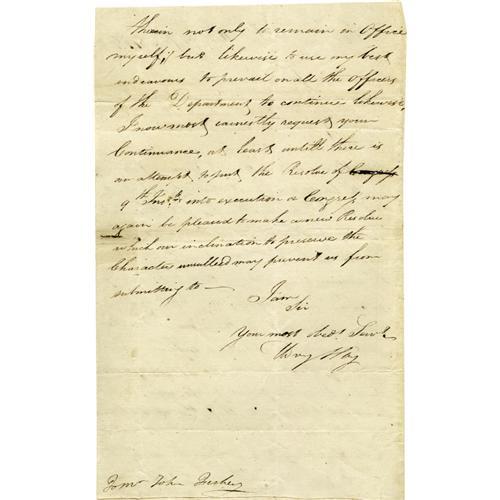 therein not only to remain in Office
myself; but likewise to use my best
endeavours to prevail on all the Officers
of the Department to continue likewise,
I now most earnestly request your
Continuance, at least untill there is
an attempt to put the Resolve of Congress
9th Inst. into execution or Congress may
again be pleased to make a new Resolve
which our inclination to preserve the
Character unsullied may prevent us from
submitting to —
I am
Sir
Your most Obedt. Servt.
Udny Hay
To Mr John Fisher